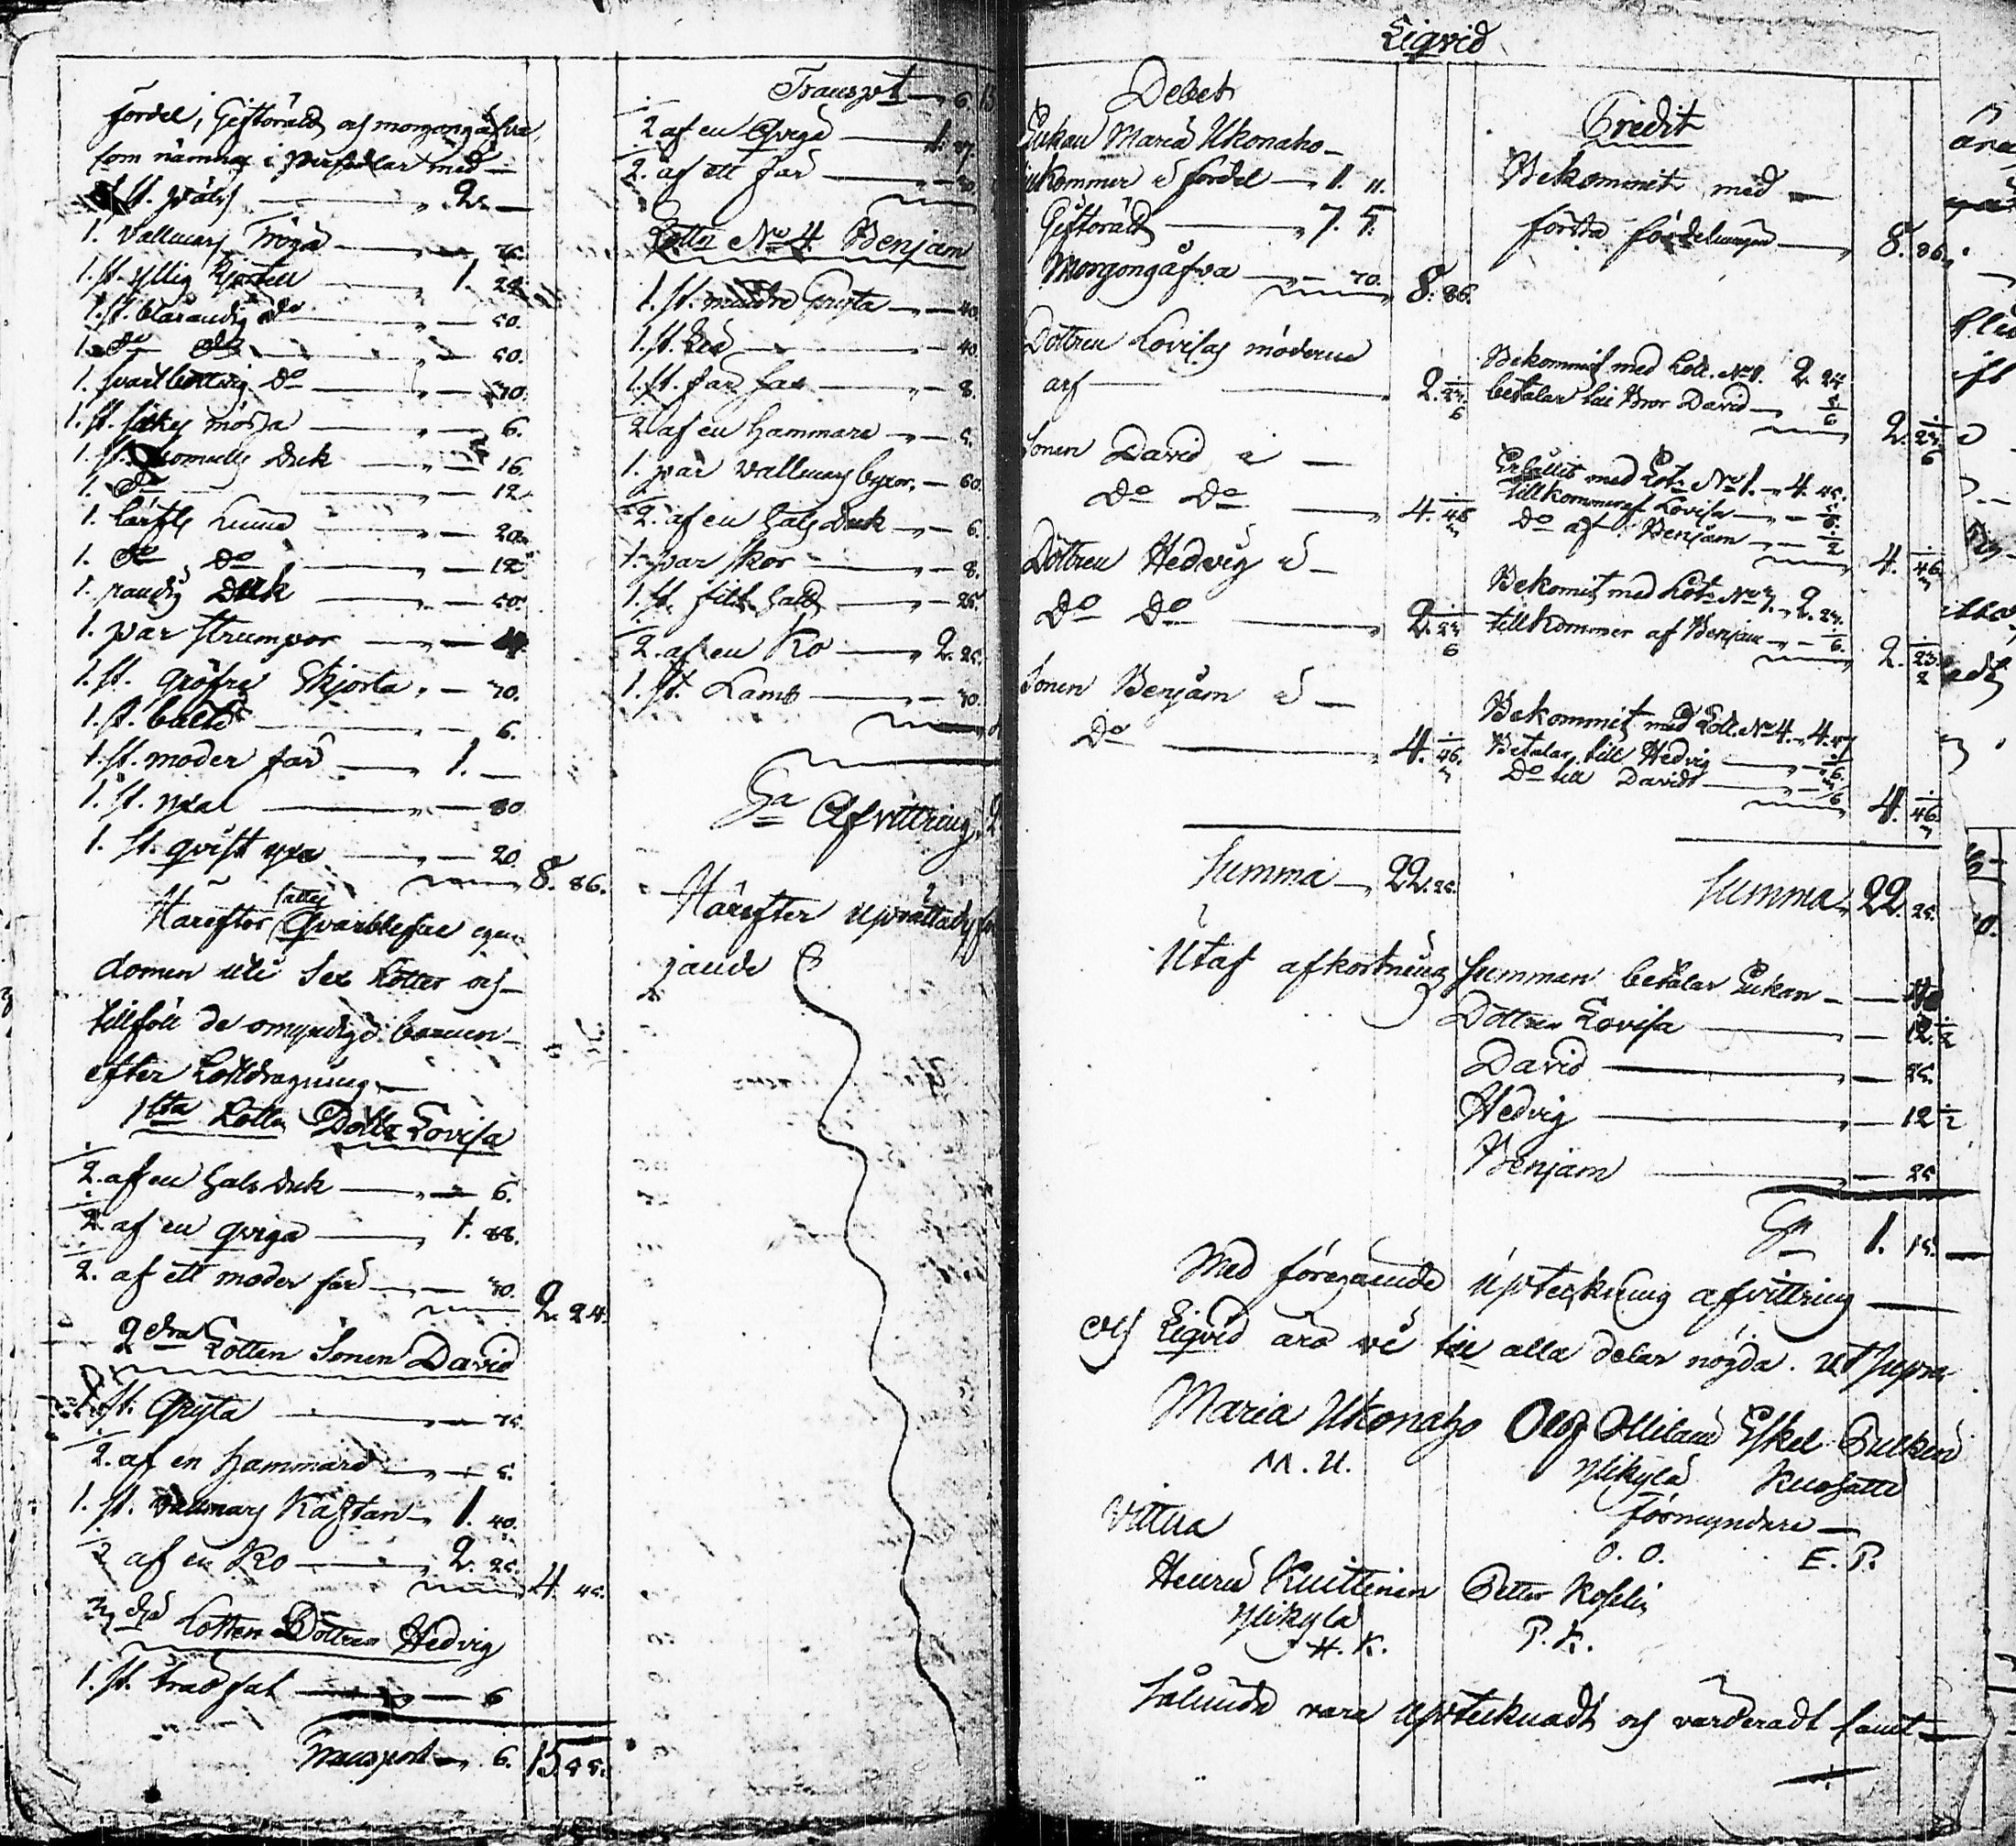 fördel, Giftorätt och morgongåfva,
som nämnes i persedlar med —
1 st. päls — " 2. —
1. vallmars Tröja — " — 75.
1. st. yllig Kjortell — " 1. 24.
1. st. blårandig do — " — 50.
1. do do — " — 50.
1. svart bottnig do — " — 70.
1. st. mössa — " — 6.
1. st. bomulls Duk — " — 16.
1. do — " — 12.
1. lärfts — " — 20.
1. do do — " — 12.
1. randig Duk — " — 50.
1. par strumpor — " —
1. st. gröfre Skjorta " — 70.
1. st. bälte — " — 6.
1. st. moder får — " 1. —
1. st. yxa — " — 80
1. st. qvist yxa — " — 20.
8. 86.
Härefter sattes qvarblefne egen-
domen uti Lotter och
tillföll de omyndige barnen
efter Lottdragning —
1sta Lotten Dottr Lovisa
1/2 af en halsduk — " — 6.
1/2 af en qviga — " 1. 88.
1/2 af ett moder får — " — 30.
2. 24.
2dra Lotten Sonen David
1 st. Gryta — " — 75.
1/2 af en Hammare — " — 5.
1. st. vallmars Kaftan — " 1. 40.
1/2 af en Ko — " 2. 25.
4. 45.
3dje Lotten Dottren Hedvig
1. st. träd fat — " — 6
Transport — " 6. 15. 55.
Transport — " 6. 15
1/2 af en Qviga — 1. 87.
1/2 af ett får — " — 30.
Lotten No 4. Benjam
1. st. mindre Gryta — " — 40.
1. st. — " — 40.
1. st. — " — 8.
1/2 af en Hammare — " — 5.
1. par vallmars byxor, — 60.
1/2 af en hals Duk — " — 6.
1. par skor — " — 8.
1. st. — " — 25.
1/2 af en Ko — " 2. 25.
1. st. Lamb — " — 30.
Sa Afvittring
Härefter uprättades föl-
jande
Liqvid
Debet
Enkan Maria Ukonaho —
tillkommer i fördel — " 1. 11.
Giftorätt — " 7. 5.
Morgongåfva — " — 70. " 8. 86.
Dottren Lovisas möderne
arf — 2. 23 1/6
Sonen David i —
Do Do — " 4. 46
Dottren Hedvig i —
Do Do — " 2. 23 1/6
Sonen Benjam i —
Do — " 4. 46.
Summa — " 22. 25.
Credit
Bekommit med —
första fördelningen — " 8. 86.
Bekommit med Lott. No 1. 2. 24
betalar till Bror David — " 5/6
2. 23 1/6
Erhållit med Lott No 1. — " 4. 45.
tillkommer af Lovisa — " — 5/6.
Do af Benjam — " — 1/2
4. 46
Bekomit med Lott No 3. — " 2. 23.
tillkommer af Benjam — " — 1/6.
2. 23.
Bekommit med Lott. No 4. — " 4. 47
Betalar till Hedvig — " — 1/6.
Do till David —
4. 46
Summa " 22. 25.
Utaf afkortnings summan betalar Enkan — —
Dottren Lovisa — " — 12 1/2
David — " — 25.
Hedvig — " — 12 1/2
Benjam — " — 25
Sa 1. 15. —
Med föregående Upteckning afvittring —
och Liqvid äro vi till alla delar nögda. ut supra
Maria Ukonaho Olof Ollilain Eskel Pulkein
M. U. Ylikylä
Förmyndere —
O. O. E. P.
Vittna
Henric Kuittinen Petter Koslin
Ylikylä
H. K. P. K.
Sålunda vara Uptecknadt och värderadt samt —